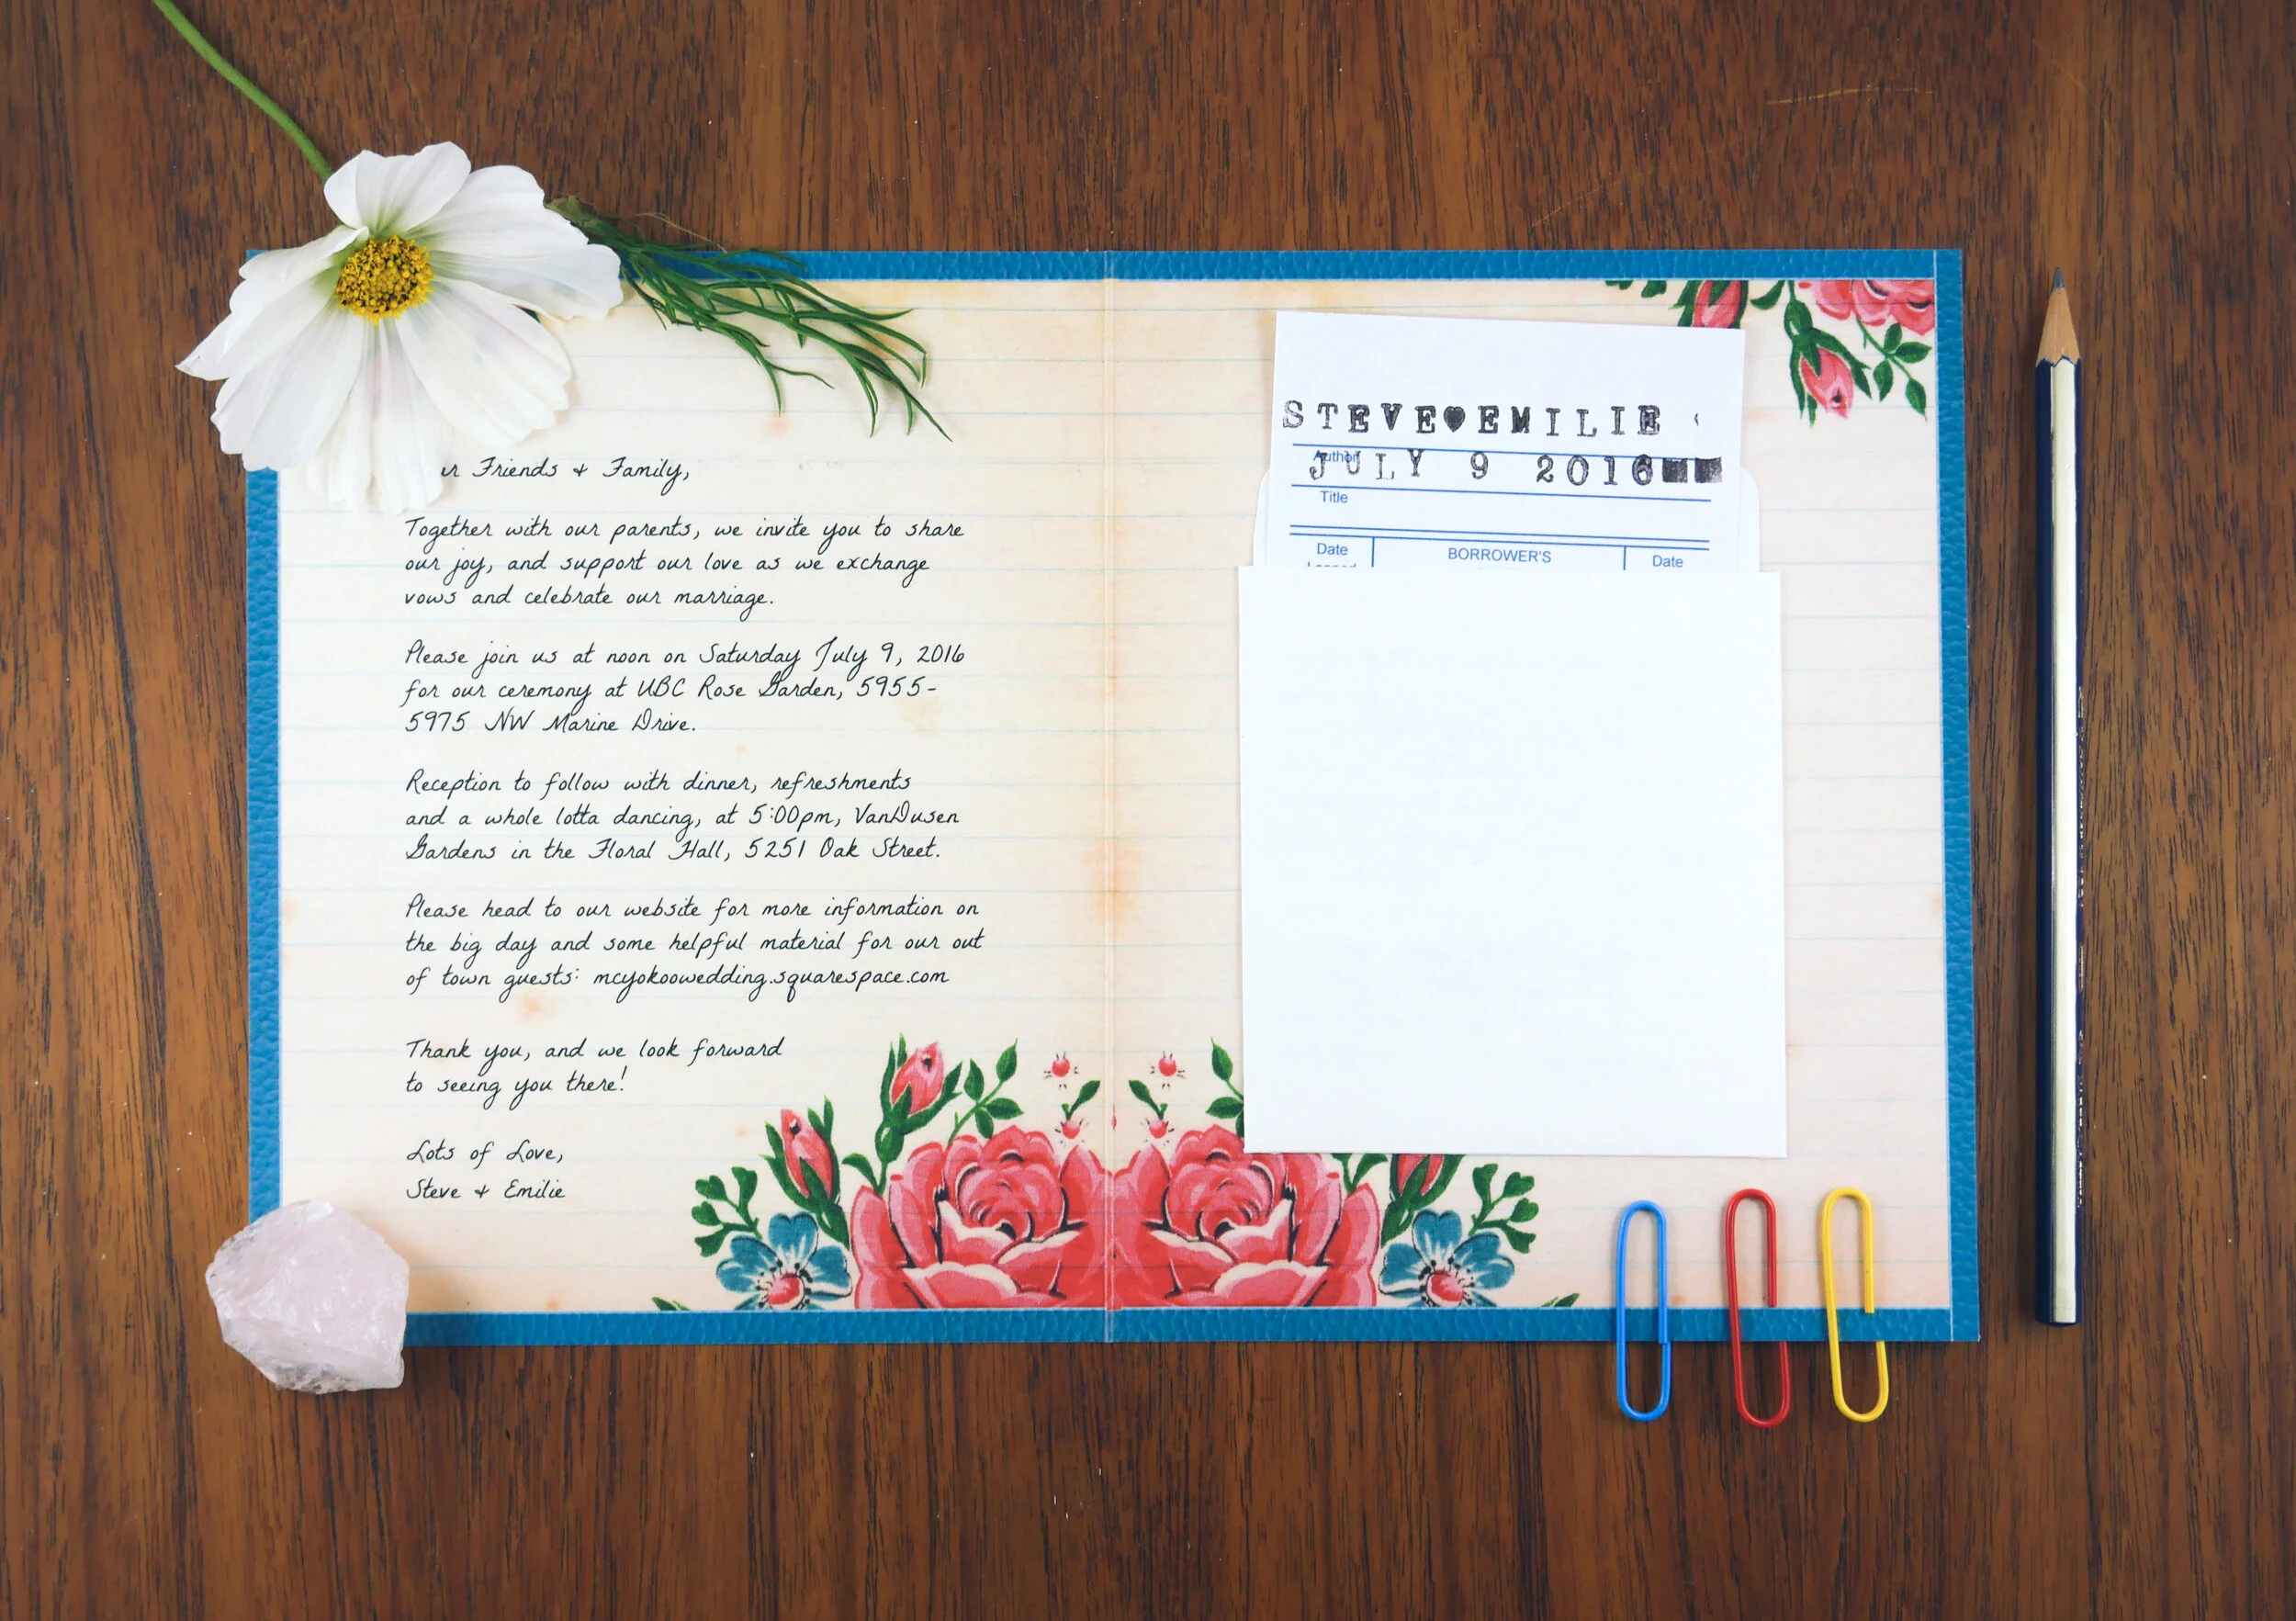 Friends & Family,
Together with our parents, we invite you to share
our joy, and support our love as we exchange
vows and celebrate our marriage.
Please join us at noon on Saturday July 9, 2016
for our ceremony at UBC Rose Garden, 5955-
5975 NW Marine Drive.
Reception to follow with dinner, refreshments
and a whole lotta dancing, at 5:00pm, VanDusen
Gardens in the Floral Hall, 5251 Oak Street.
Please head to our website for more information on
the big day and some helpful material for our out
of town guests: mcyokoowedding.squarespace.com
Thank you, and we look forward
to seeing you there!
Lots of Love,
Steve & Emilie
STEVE♥EMILIE
Author
JULY 9 2016
Title
Date BORROWER'S Date